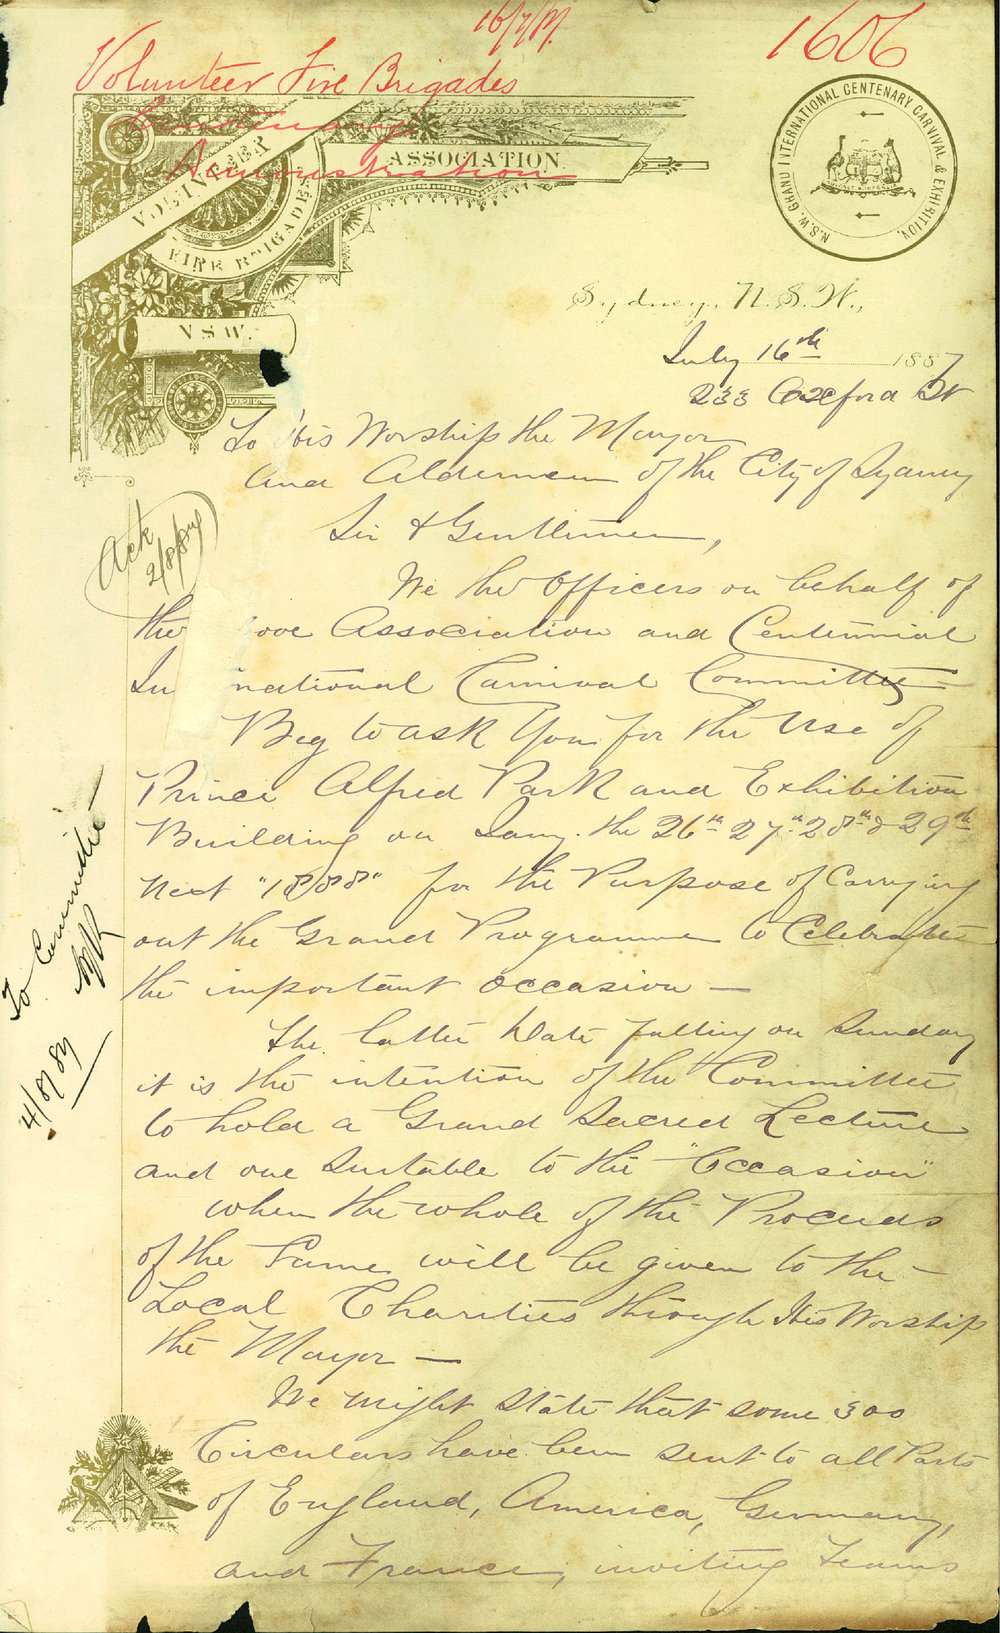 16/7/87.
1606
Volunteer Fire Brigades
Centenary
Demonstration
VOLUNTEER
FIRE BRIGADES
ASSOCIATION
N.S.W.
N.S.W. GRAND INTERNATIONAL CENTENARY CARVIVAL & EXHIBITION.
Sydney, N.S.W.,
July 16th 1887
233 Oxford St
To His Worship the Mayor
And Aldermen of the City of Sydney
Sir & Gentlemen,
Ack
2/8/87
We the Officers on behalf of
the ove Association and Centennial
In national Carnival Committee —
Beg to ask You for the Use of
Prince Alfred Park and Exhibition
Building on Jany. the 26th 27th 28th & 29th
next "1888" for the Purpose of Carrying
out the Grand Programme to Celebrate
the important occasion —
To Committee
4/8/87
The latter Date falling on Sunday
it is the intention of the Committee
to hold a Grand Sacred Lecture
and one Suitable to the "Occasion"
when the whole of the Proceeds
of the Same will be given to the —
Local Charities through His Worship
the Mayor —
We might State that some 300
Circulars have been sent to all Parts
of England, America, Germany,
and France, inviting Teams